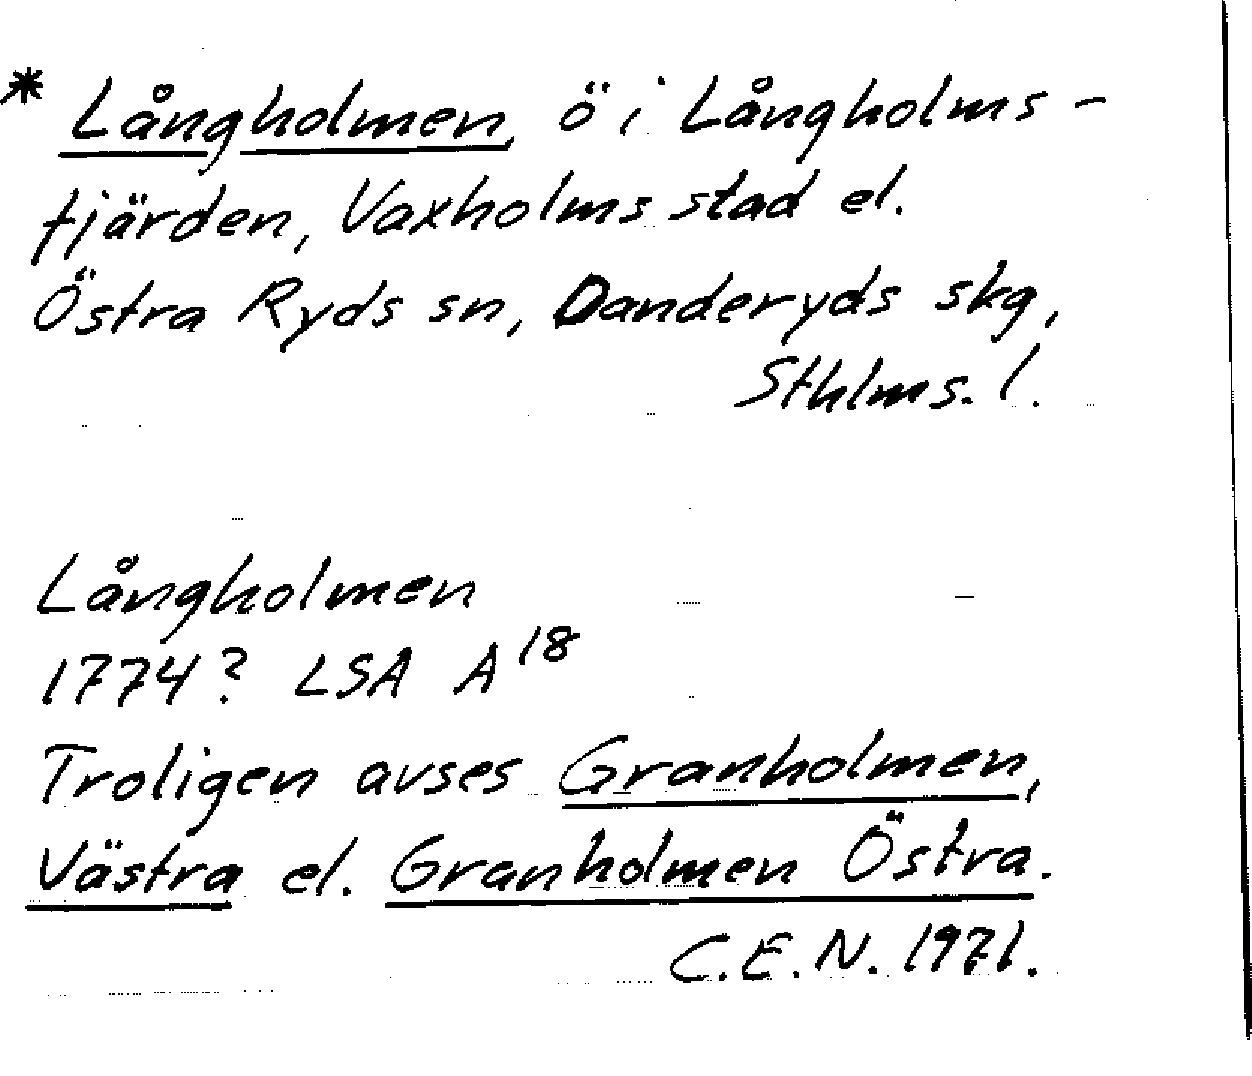 * Långholmen, ö i Långholms-
fjärden, Vaxholms stad el.
Östra Ryds sn, Danderyds skg,
Sthlms. l.
Långholmen
1774? LSA A 18
Troligen avses Granholmen,
Västra el. Granholmen Östra.
C.E.N. 1971.